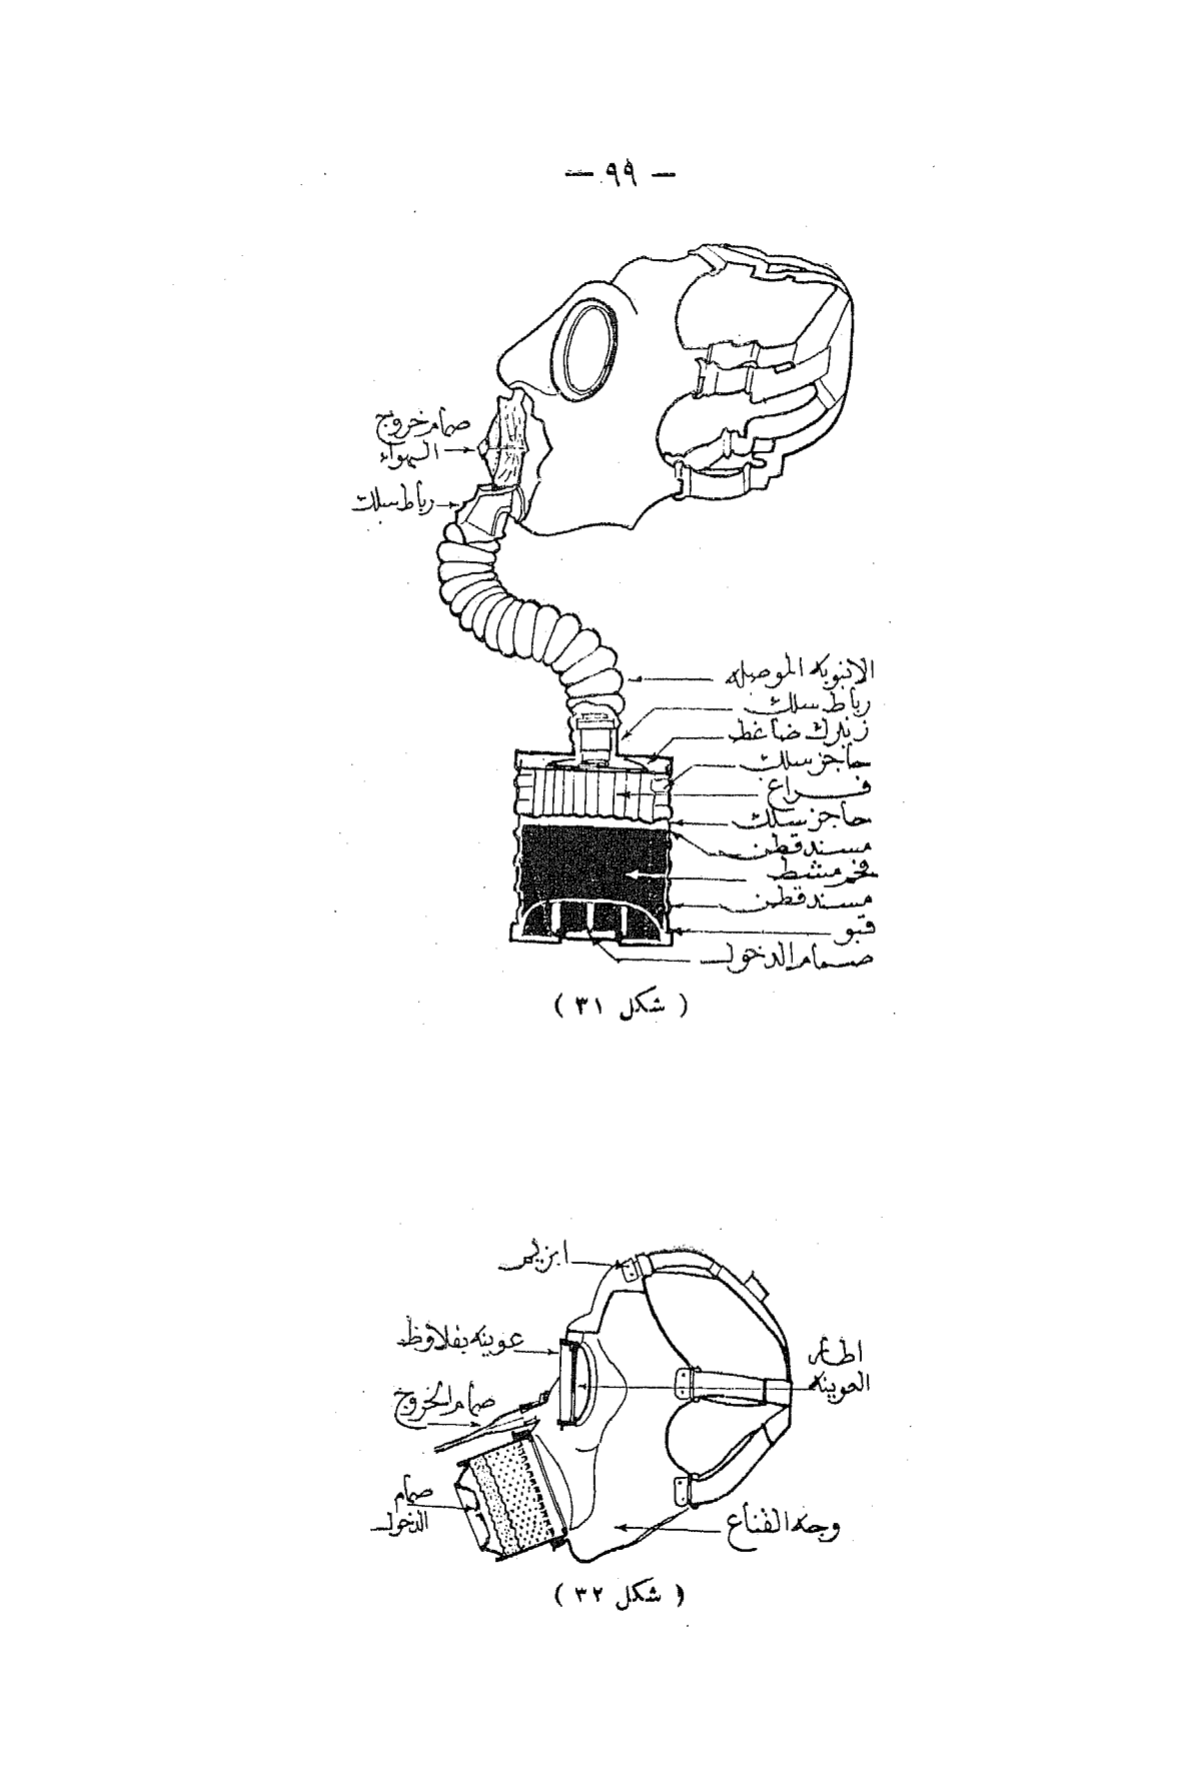 — ٩٩ —
صمام خروج
الهواء
رباط سلك
الانبوبه الموصله
رباط سلك
زنبرك ضاغط
حاجز سلك
فراغ
حاجز سلك
مسند قطن
فحم منشط
مسند قطن
قبو
صمام الدخول
( شكل ٣١ )
ابزيم
عوينه بقلاوظ
اطار
العوينه
صمام الخروج
صمام
الدخول
وجه القناع
( شكل ٣٢ )